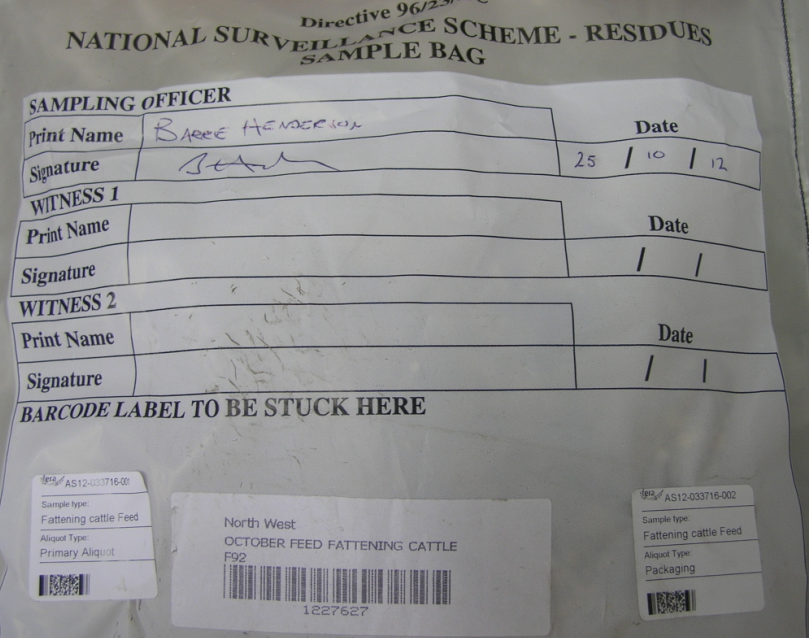 Directive 96/23/
NATIONAL SURVEILLANCE SCHEME - RESIDUES
SAMPLE BAG
SAMPLING OFFICER
Print Name HENDERSON Date
Signature 25 / 10 / 12
WITNESS 1
Print Name Date
Signature / /
WITNESS 2
Print Name Date
Signature / /
BARCODE LABEL TO BE STUCK HERE
AS12-033716-001
Sample type:
Fattening cattle Feed
Aliquot Type:
Primary Aliquot
North West
OCTOBER FEED FATTENING CATTLE
F92
1227627
AS12-033716-002
Sample type:
Fattening cattle Feed
Aliquot Type:
Packaging